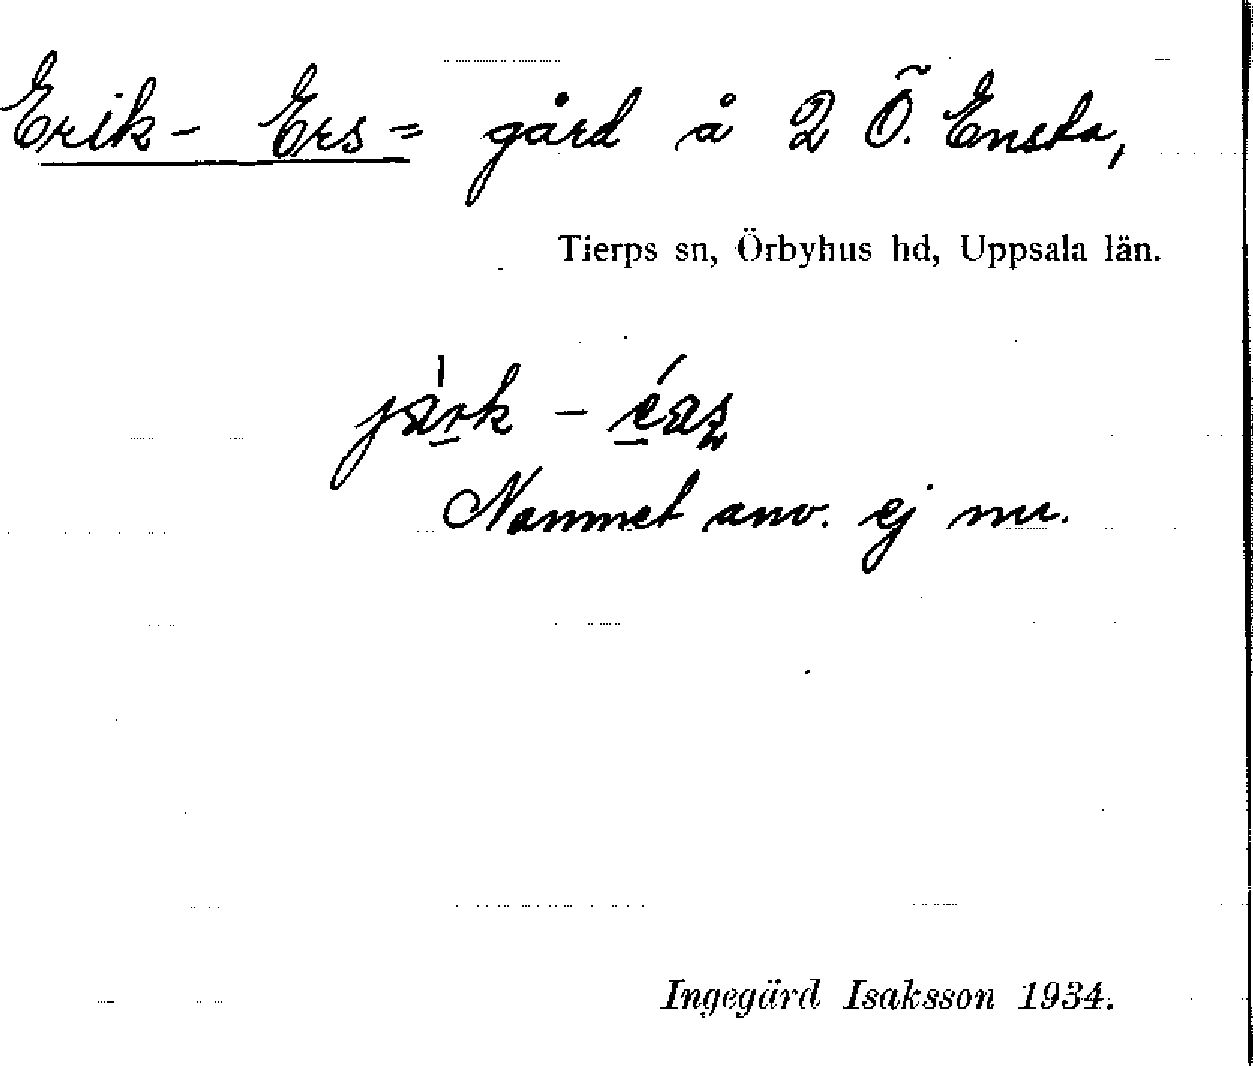 Erik- Ers= gård å 2 Ö. Ensta,
Tierps sn, Örbyhus hd, Uppsala län.
Namnet anv. ej nu.
Ingegärd Isaksson 1934.